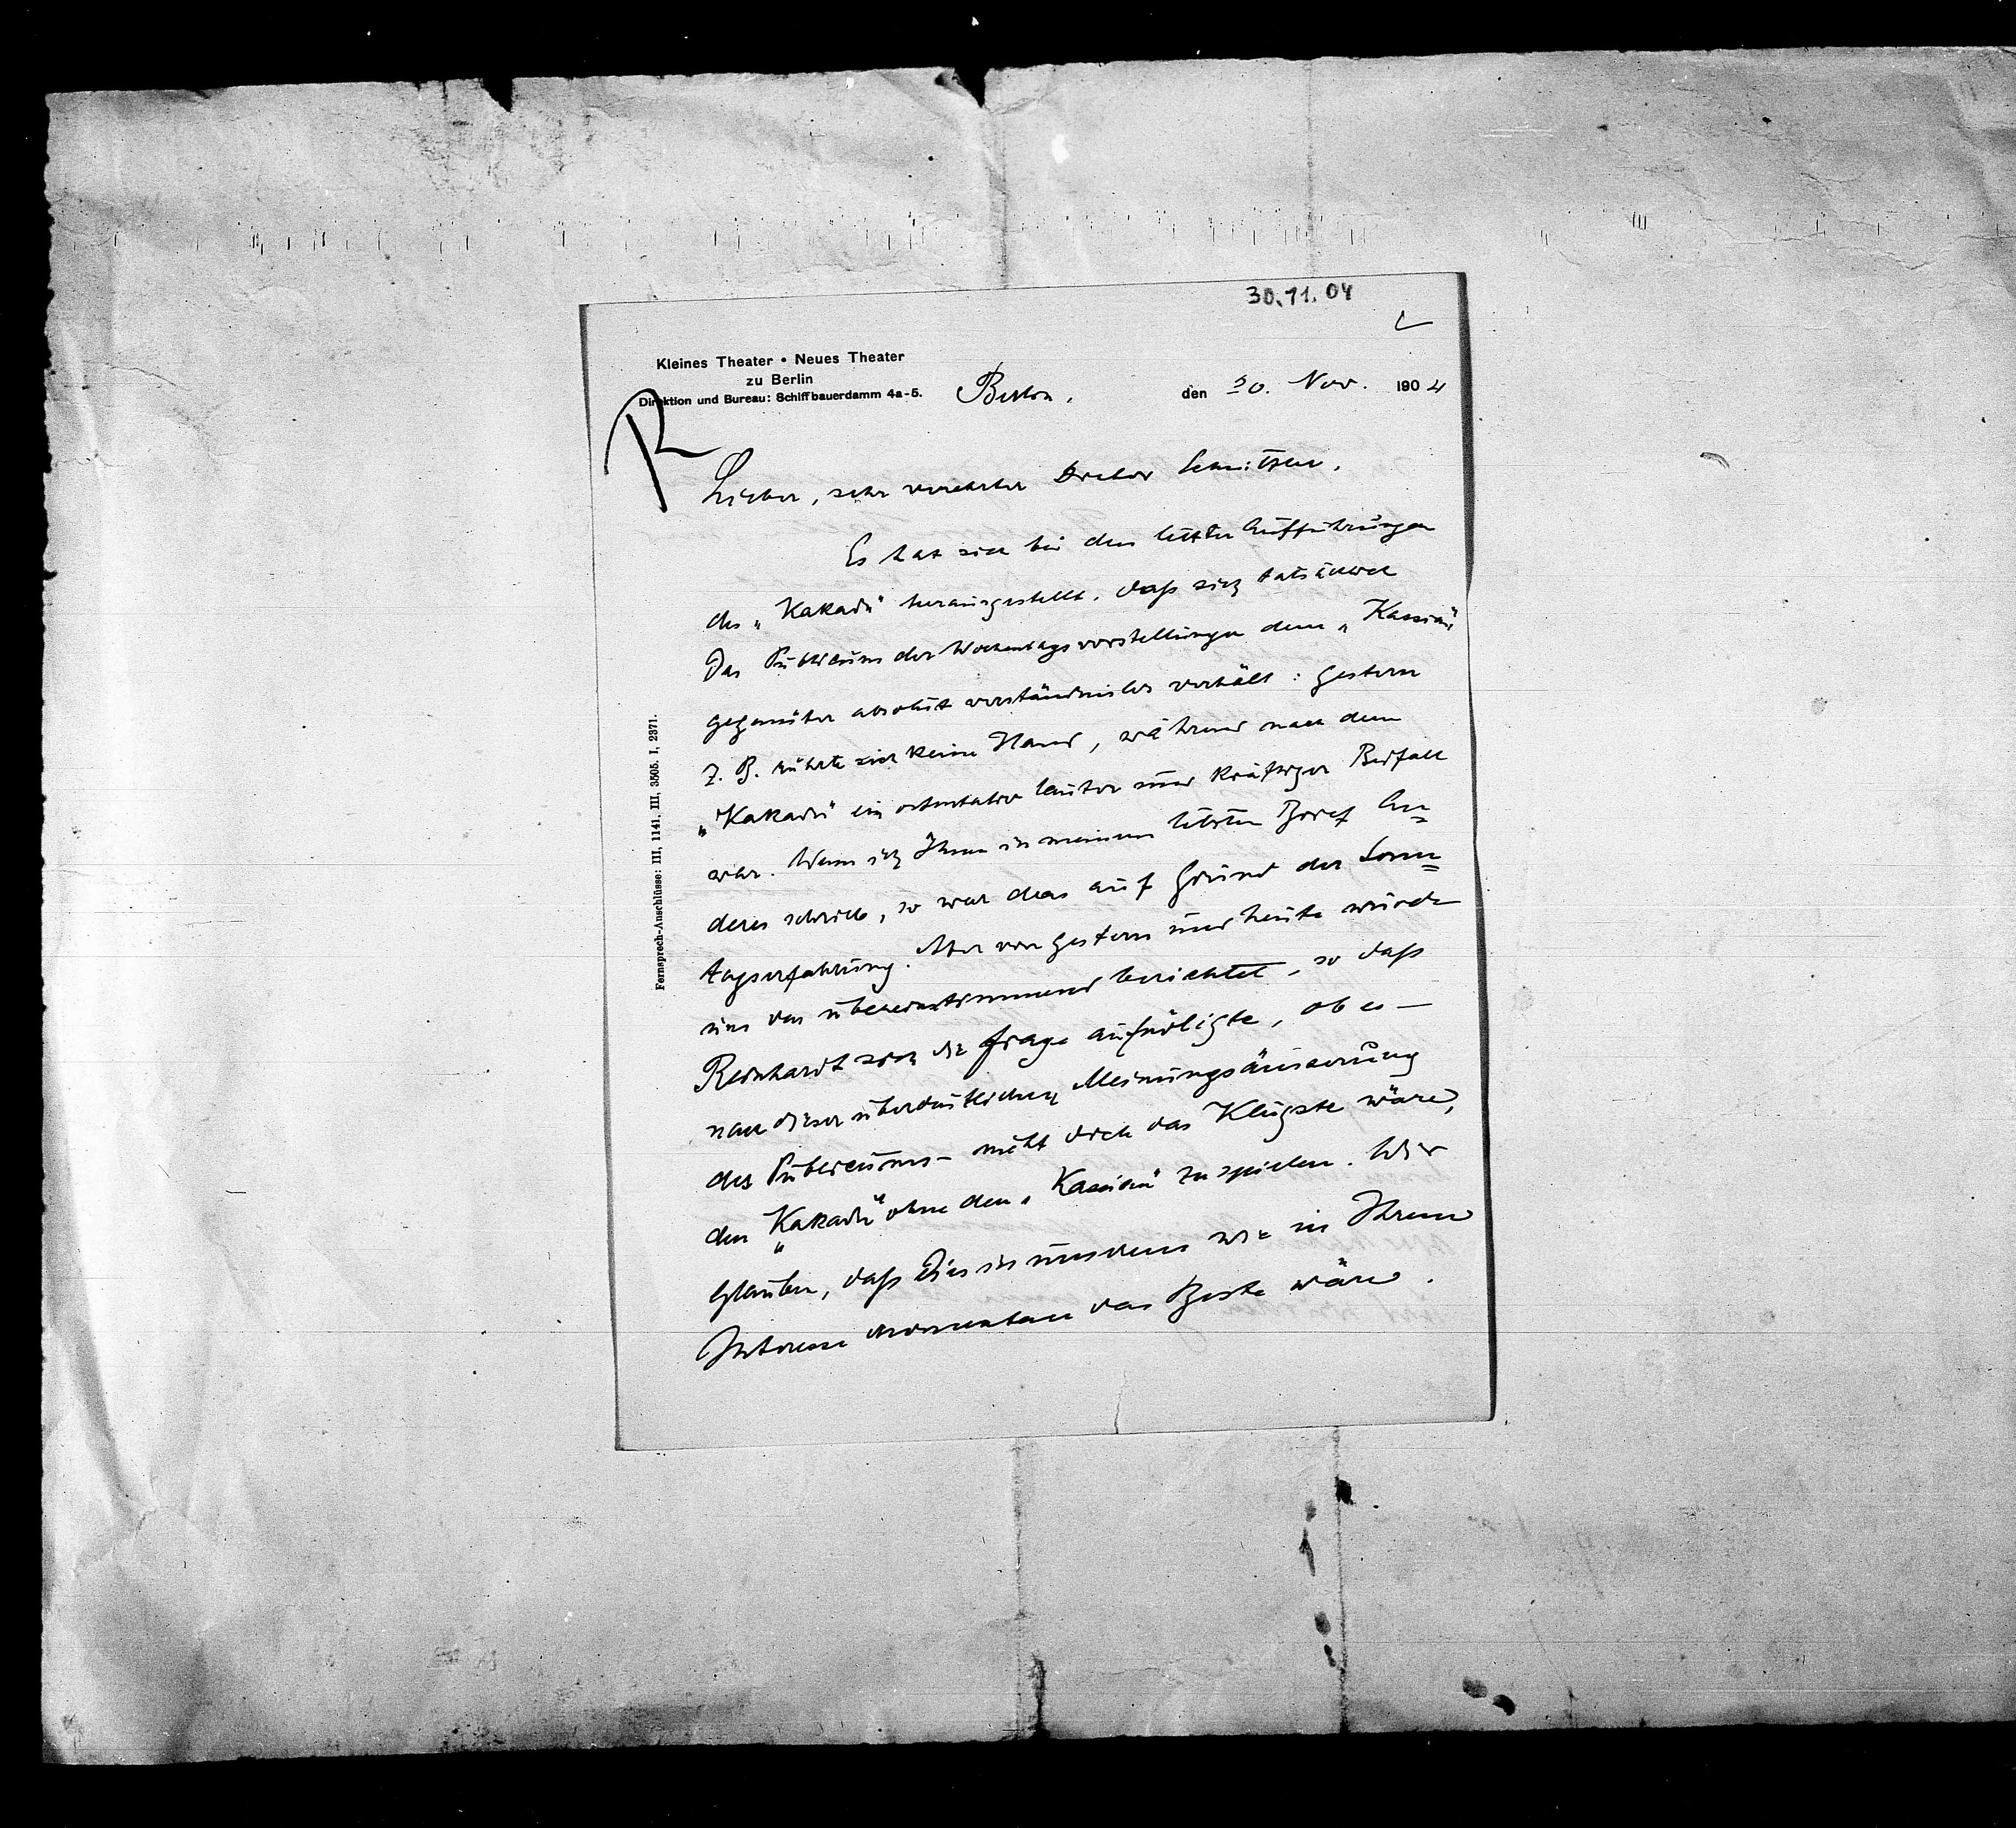 30.11.04
Kleines Theater • Neues Theater
zu Berlin
Direktion und Bureau: Schiffbauerdamm 4a-5.
Berlin, den 30. Nov. 1904
R
Fernsprech-Anschlüsse: III, 1141. III, 3505. I, 2371.
Lieber, sehr verehrter Doctor Schnitzler,
Es hat sich bei den letzten Aufführungen
des „Kakadu“ herausgestellt, daß sich tatsächlich
das Publicum der Wochentagsvorstellungen dem „Kassian“
gegenüber absolut verständnislos verhält: gestern
z. B. rührte sich keine Hand, während nach dem
„Kakadu“ ein ostentativ lauter und kräftiger Beifall
war. Wenn ich Ihnen in meinem letzten Brief An=
deres schrieb, so war das auf Grund der Sonn=
tagserfahrung. Aber von gestern und heute wurde
uns das übereinstimmend berichtet, so daß
Reinhardt sich die Frage aufnötigte, ob es –
nach dieser überdeutlichen Meinungsäusserung
des Publicums – nicht doch das Klügste wäre,
den „Kakadu“ ohne den „Kassian“ zu spielen. Wir
glauben, daß dies in unserem wie in Ihrem
Interesse momentan das Beste wäre.